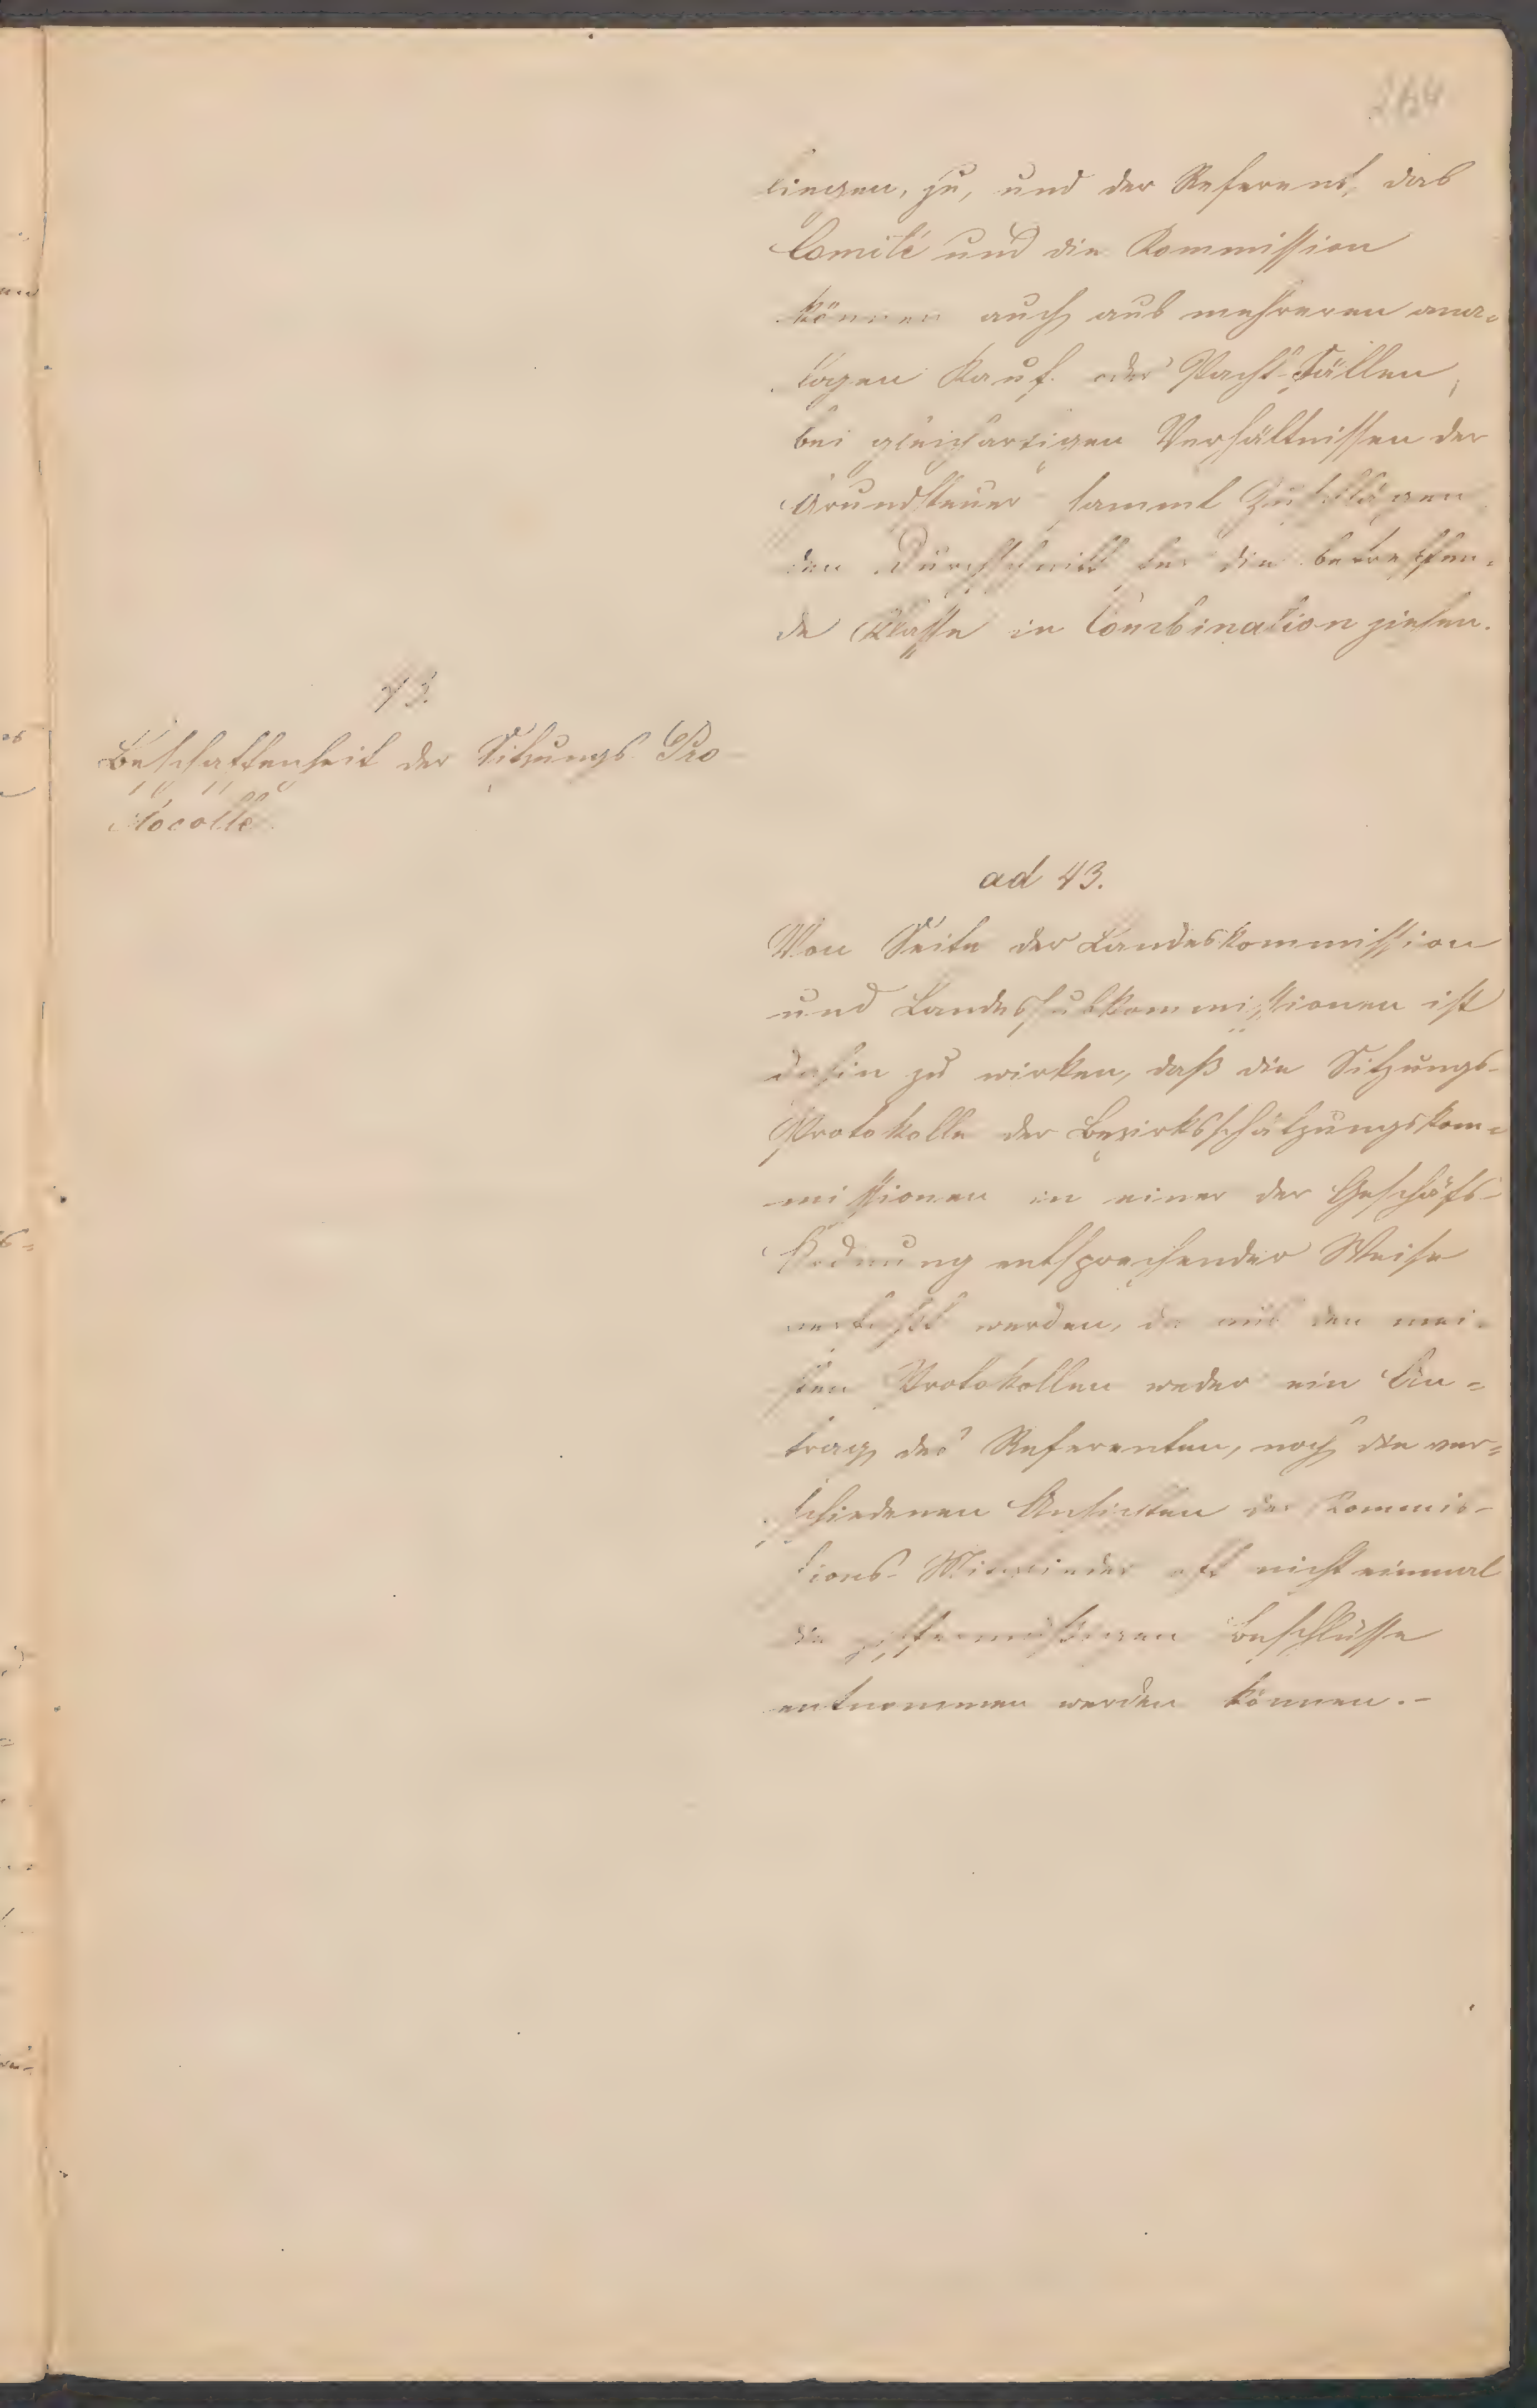 264
liegen, zu, und der Referent, das
Comité und die Kommission
können auch aus mehreren ana-
logen Kauf- oder Pacht-Fällen,
bei gleichartigen Verhältnissen der
Grundsteuer sammt Zuschlägen
den Durchschnitt für die betreffen-
de Klasse in Combination ziehen.
43.
Beschaffenheit der Sitzungs Pro-
tocolle
ad 43.
Von Seite der Landeskommission
und Landessubkommissionen ist
dahin zu wirken, daß die Sitzungs-
Protokolle der Bezirksschätzungskom-
missionen in einer der Geschäfs-
Ordnung entsprechender Weise
verfaßt werden, da mit den mei-
sten Protokollen weder ein An-
trag des Referenten, noch die ver-
schiedenen Ansichten der Kommis-
sions-Mitglieder oft nicht einmal
die ziffermäßigen Beschlüsse
entnommen werden können.-